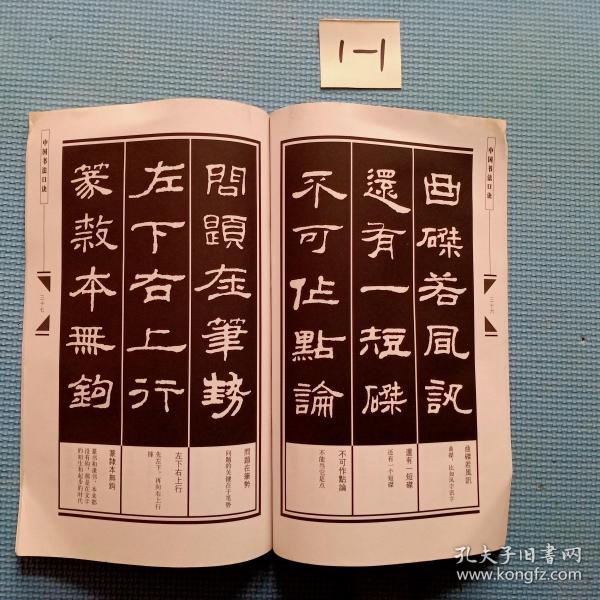 1-1
中国书法口诀
三十六
曲磔若風訊
還有一短磔
不可作點論
曲磔若風訊
曲磔，比如风字讯字
還有一短磔
还有一个短磔
不可作點論
不能当它是点
中国书法口诀
三十七
問題在筆勢
左下右上行
篆隸本無鉤
問題在筆勢
问题的关键在于笔势
左下右上行
先左下，再向右上行
篆隸本無鉤
篆书和隶书，本来都
没有钩，
孔夫子旧书网
www.kongfz.com